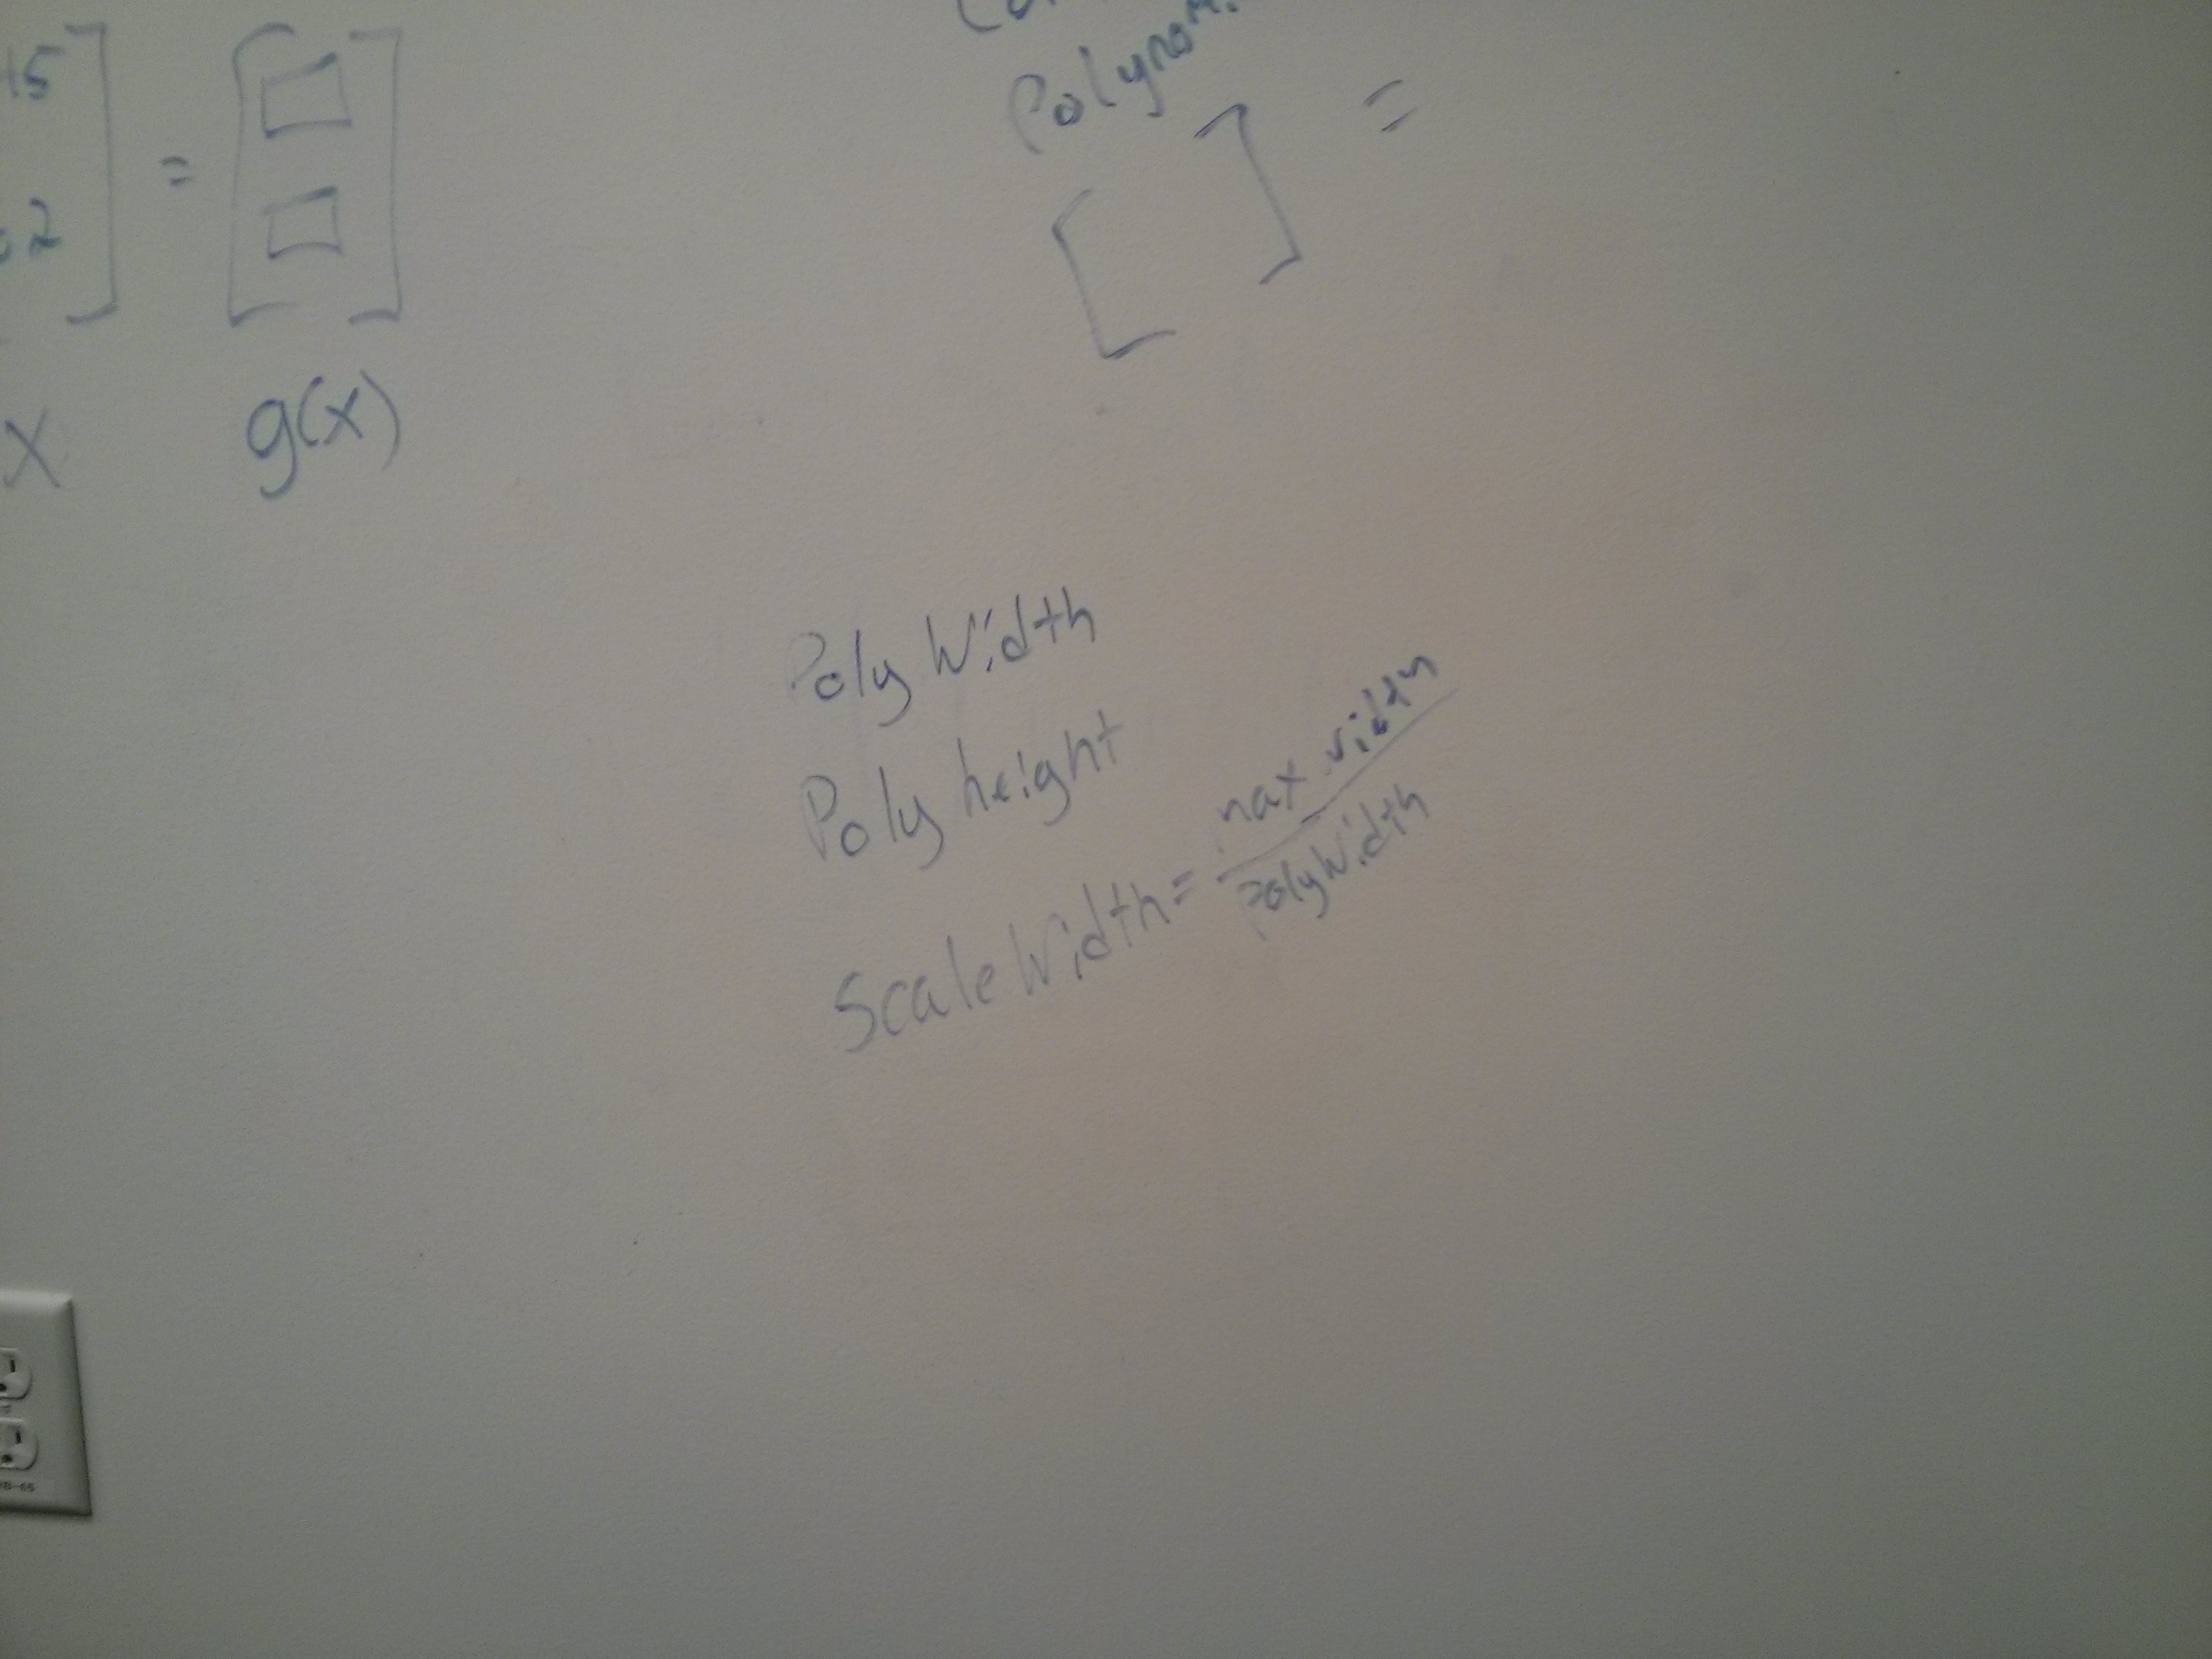 +5
2
=
x
g(x)
=
Poly Width
Poly height
Scale Width = max width
Poly Width